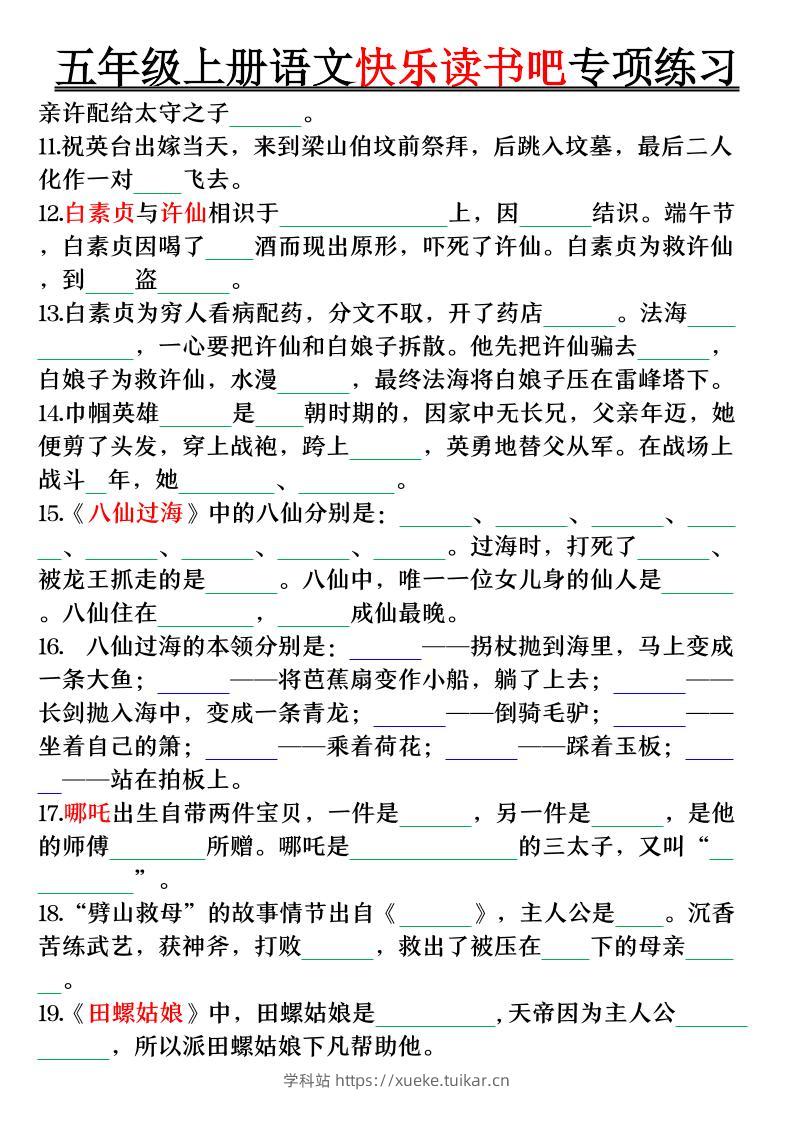 五年级上册语文快乐读书吧专项练习
亲许配给太守之子______。
11.祝英台出嫁当天，来到梁山伯坟前祭拜，后跳入坟墓，最后二人
化作一对____飞去。
12.白素贞与许仙相识于______________上，因______结识。端午节
，白素贞因喝了____酒而现出原形，吓死了许仙。白素贞为救许仙
，到____盗______。
13.白素贞为穷人看病配药，分文不取，开了药店______。法海____
________，一心要把许仙和白娘子拆散。他先把许仙骗去______，
白娘子为救许仙，水漫______，最终法海将白娘子压在雷峰塔下。
14.巾帼英雄______是____朝时期的，因家中无长兄，父亲年迈，她
便剪了头发，穿上战袍，跨上______，英勇地替父从军。在战场上
战斗__年，她________、________。
15.《八仙过海》中的八仙分别是：______、______、______、____
__、______、______、______、______。过海时，打死了______、
被龙王抓走的是______。八仙中，唯一一位女儿身的仙人是______
。八仙住在________，______成仙最晚。
16. 八仙过海的本领分别是：______——拐杖抛到海里，马上变成
一条大鱼；______——将芭蕉扇变作小船，躺了上去；______——
长剑抛入海中，变成一条青龙；______——倒骑毛驴；______——
坐着自己的箫；______——乘着荷花；______——踩着玉板；____
__——站在拍板上。
17.哪吒出生自带两件宝贝，一件是______，另一件是______，是他
的师傅________所赠。哪吒是______________的三太子，又叫“__
________”。
18.“劈山救母”的故事情节出自《______》，主人公是____。沉香
苦练武艺，获神斧，打败______，救出了被压在____下的母亲____
__。
19.《田螺姑娘》中，田螺姑娘是__________,天帝因为主人公______
______，所以派田螺姑娘下凡帮助他。
学科站 https://xueke.tuikar.cn